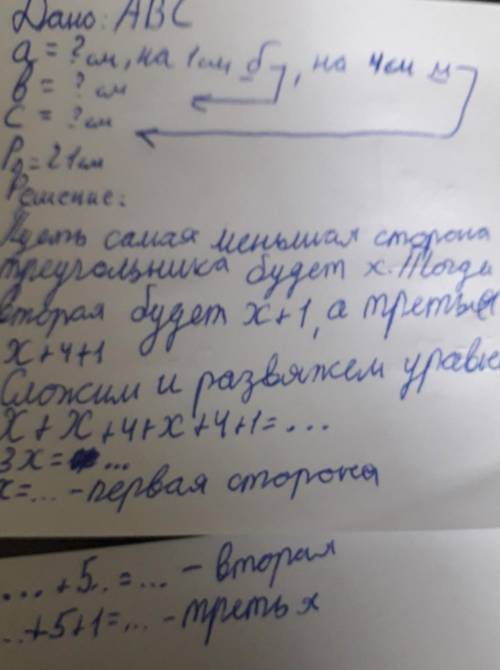 Дано: ABC
a = ? см, на 1 см б , на 4 см м
b = ? см
c = ? см
P△ = 21 см
Решение:
Пусть самая меньшая сторона
треугольника будет x. Тогда
вторая будет x+1, а третья
x+4+1
Сложим и развяжем уравне
x + x+4+x+4+1=...
3x = ...
x=... - первая сторона
... +5. =... - вторая
..+5+1=... - третья